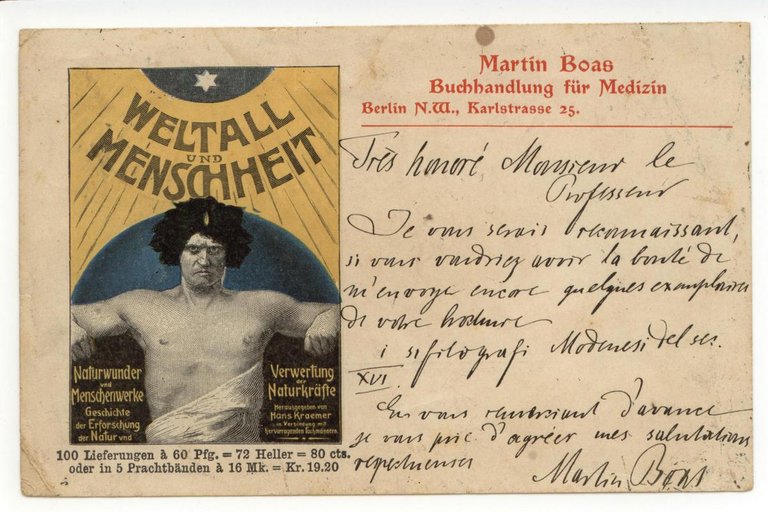 WELTALL
UND
MENSCHHEIT
Naturwunder
und
Menschenwerke
Geschichte
der Erforschung
der Natur und
Verwertung
der
Naturkräfte
Herausgegeben von
Hans Kraemer
in Verbindung mit
hervorragenden Fachmännern.
100 Lieferungen à 60 Pfg. = 72 Heller = 80 cts.
oder in 5 Prachtbänden à 16 Mk. = Kr. 19.20
Martin Boas
Buchhandlung für Medizin
Berlin N.W., Karlstrasse 25.
Très honoré Monsieur le
Professeur
Je vous serais reconnaissant,
si vous voudriez avoir la bonté de
m'envoye encore quelques exemplaires
de votre brochure
i sifilografi Modenesi del sec.
XVI.
En vous remerciant d'avance
je vous prie d'agréer mes salutations
respectueuses
Martin Boas